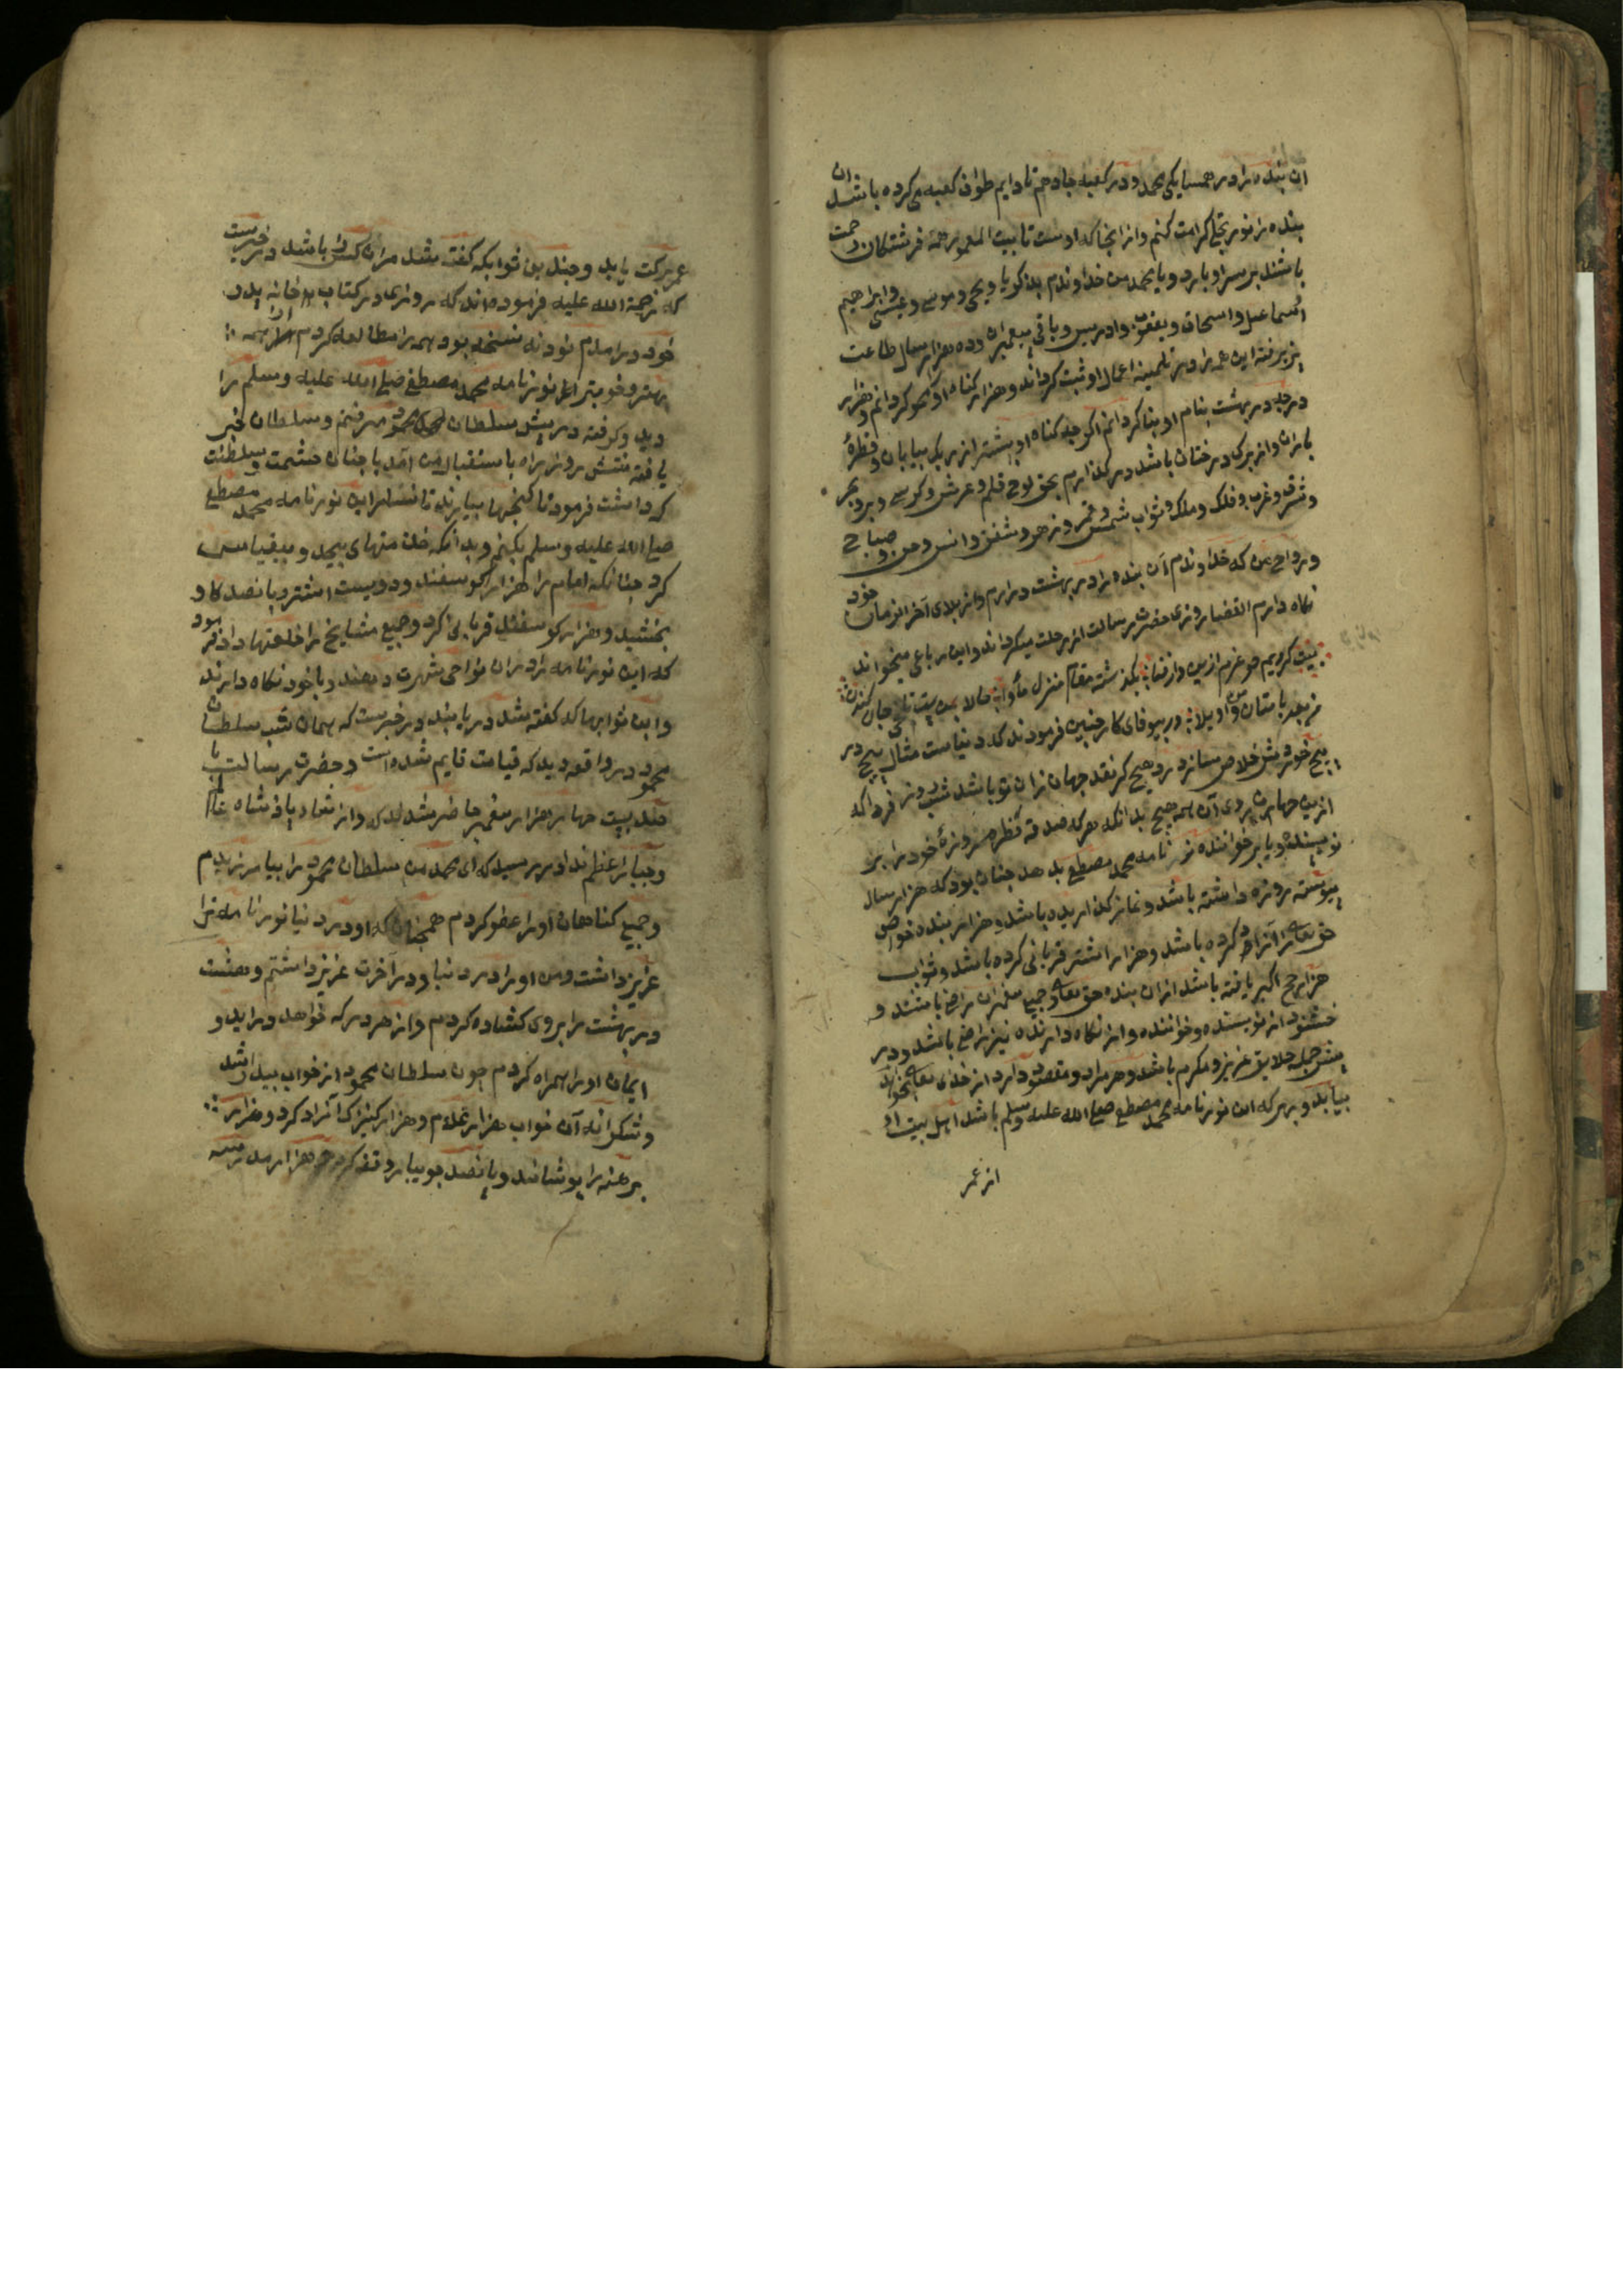 ان بنده را در همسایکی محمد و در کعبه جا دهم تا دایم طواف کعبه می کرده باشد ان
بنده را نور تجلی کرامت کنم و از انجا که اوست تا بیت المعمور همه فرشتکان رحمت
باشند بر سر او بارد و یا محمد من خداوندم بذکریا و یحیی و موسی و عیسی و ابراهیم
اسماعیل و اسحاق و یعقوب و ادریس و باقی پیغمبران و ده هزار سال طاعت
پزیرفته این همه را در نامه اعمال او ثبت کرداند و هزار کناه او محو کردانم و هزار
درجه در بهشت بنام او بنا کردانم اکر چه کناه او بیشتر از ریک بیابان و قطرهٔ
باران و از برک درختان باشد در کذارم بحق لوح قلم و عرش و کرسی و بر و بحر
و شرق و غرب و فلک و ملک و ثواب شمس و قمر و زهره و شفق و انس و جن و صباح
و رواح من که خداوندم آن بنده را در بهشت درارم و از بلای آخر الزمان خود
نکاه دارم القضا روزی حضرت رسالت از رحلت میکرداند و این رباعی میخواند
بیت کردیم عزم ازین دار فنا بکذشته مقام منزل مأوا
در بیوفای کار چنین فرمودند که دنیاست مثال هیچ در
هیچ خود خلاص هیچ کر نقد جهان ازان تو باشد شب و روز فردا که
ازین جهان روی آن همه هیچ بدانکه هر که صدقه فطره روزهٔ خود را بر
نویسنده و یا بر خواننده نور نامه محمد مصطفی بدهد چنان بود که هزار سال
پیوسته روزه داشته باشد و نماز کذاریده باشد و هزار بنده خواص
حق تعالی را آزاد کرده باشد و هزار اشتر قربانی کرده باشد و ثواب
هزار حج اکبر یافته باشد ازان بنده حق تعالی و جمیع پیغمبران راضی باشند و
خشنود از نویسنده و خواننده و از نکاه دارنده نیز راضی باشد و در
پیش جمله خلایق عزیز و مکرم باشد و هر مراد و مقصود دارد از خدای تعالی بخواهد
بیابد و بهر که این نور نامه محمد مصطفی صلی الله علیه وسلم باشد اهل بیت او
از عمر
عمر برکت یابد و چندین ثوابکه کفته شد مران کس را باشد در خبرست
که رحمة الله علیه فرموده اند که روزی در کتاب خانه پدر
خود درامدم نود نه نسخه بود همه را مطالعه کردم از همه
بهتر و خوبتر نور نامه محمد مصطفی صلی الله علیه وسلم را
دید و کرفته در پیش سلطان محمود رفتم و سلطان خبر
یافته شش روزه راه باستقبال من آمد با چنان حشمت و سلطنت
که داشت فرمود تا کنجها بیارند تا نثار این نور نامه محمد مصطفی
صلی الله علیه وسلم بکنم و بدانکه خدمتهای بیحد و بیقیاس
کرد چنانکه امام را هزار کوسفند و دویست اشتر و پانصد کاو
بخشید و هزار کوسفند قربانی کرد و جمیع مشایخ را خلعتها داد فرمود
که این نور نامه را دران نواحی شهرت دهند و با خود نکاه دارند
و این ثوابها که کفته شد دریابند در خبرست که همان شب سلطان
محمود در واقعه دید که قیامت قایم شده است و حضرت رسالت با
صد بیست چهار هزار پیغمبر حاضر شدند و از پادشاه عالم
و جبار اعظم ندا در رسید که ای محمد من سلطان محمود را بیامرزیدم
و جمیع کناهان او را عفو کردم همچنان که او در دنیا نور نامه ترا
عزیز داشت من او را در دنیا و در آخرت عزیز داشتم و هشت
در بهشت را بروی کشاده کردم و از هر در که خواهد دراید و
ایمان او را همراه کردم چون سلطان محمود از خواب بیدار شد
و شکرانه آن خواب هزار غلام و هزار کنیزک آزاد کرد و هزار
برهنه را پوشانید و پانصد جویبار وقف کرد و هزار مدرسه